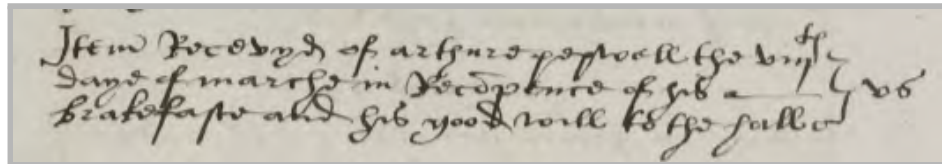 Item Recevyd of arthure pestoell the viijth
daye of marche in Recōpence of his vs
brakefaste and his good will to the halle